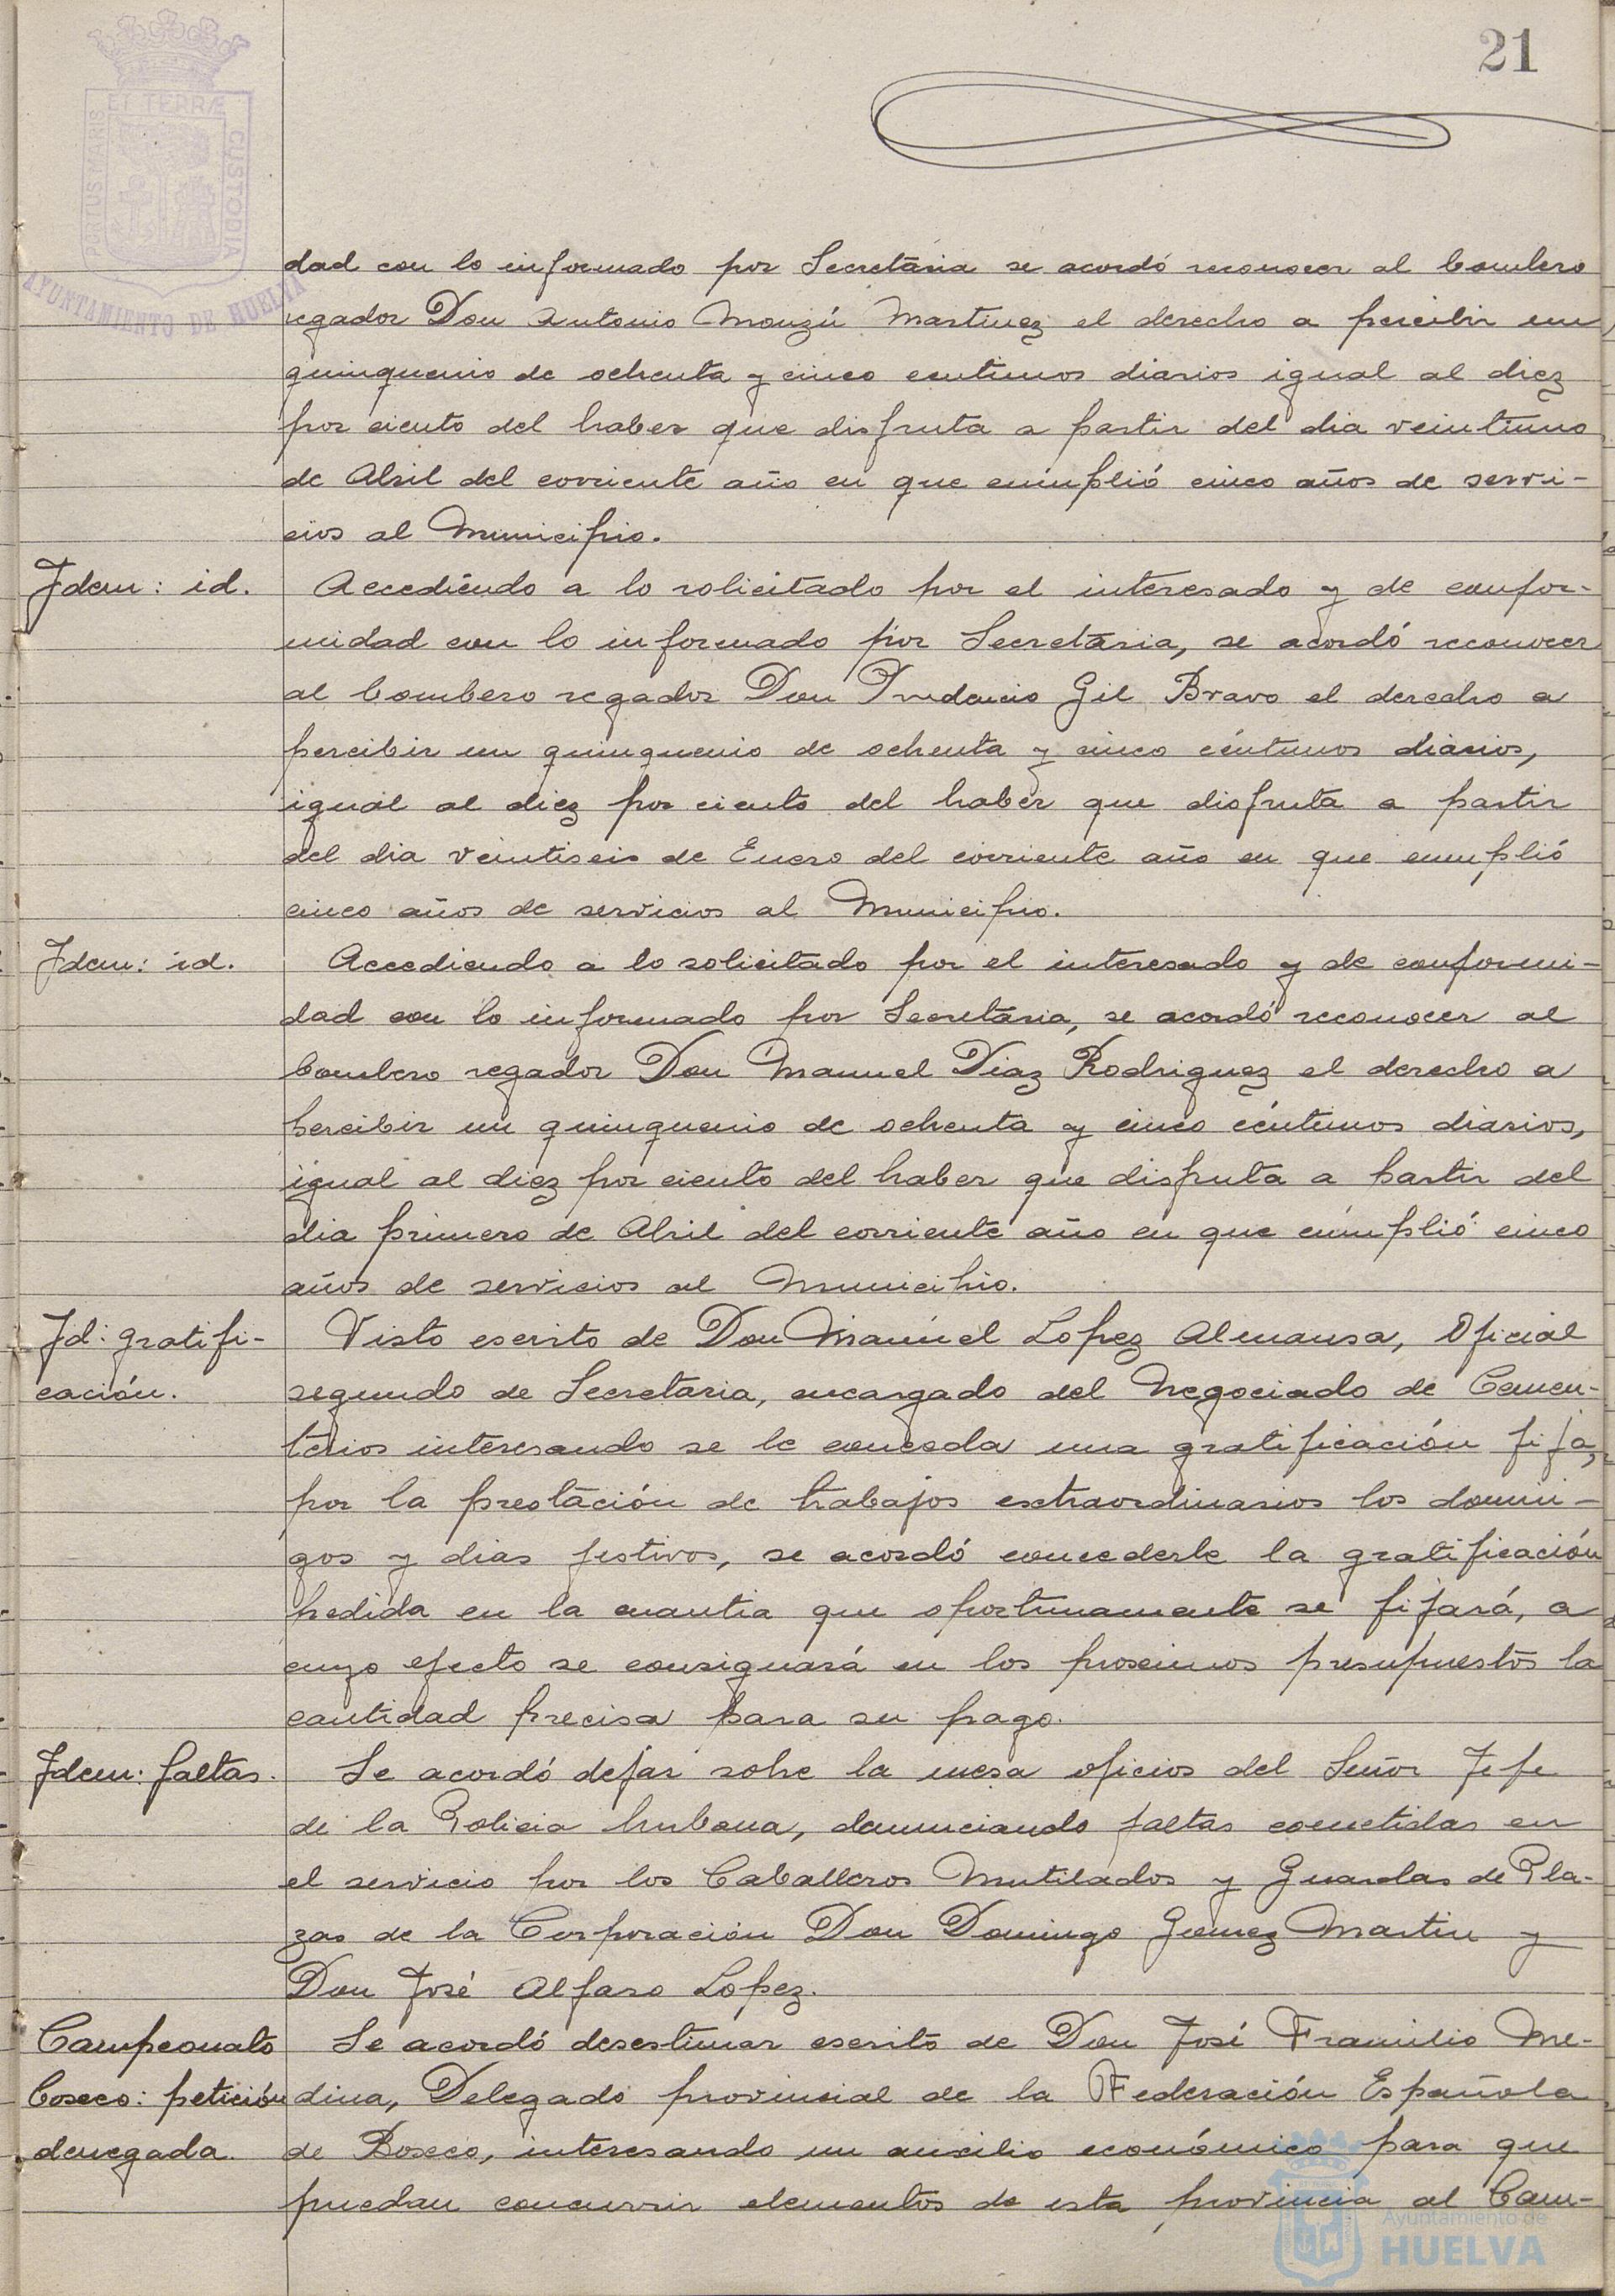 21
PORTUS MARIS
ET TERRÆ
CUSTODIA
AYUNTAMIENTO DE HUELVA
dad con lo informado por Secretaria se acordó reconocer al bombero
regador Don Antonio Monzú Martinez el derecho a percibir un
quinquenio de ochenta y cinco centimos diarios igual al diez
por ciento del haber que disfruta a partir del dia veintiuno
de Abril del corriente año en que cumplió cinco años de servi-
cios al Municipio.
Idem: id.
Accediendo a lo solicitado por el interesado y de confor-
midad con lo informado por Secretaria, se acordó reconocer
al bombero regador Don Prudencio Gil Bravo el derecho a
percibir un quinquenio de ochenta y cinco céntimos diarios,
igual al diez por ciento del haber que disfruta a partir
del dia veintiseis de Enero del corriente año en que cumplió
cinco años de servicios al Municipio.
Idem: id.
Accediendo a lo solicitado por el interesado y de conformi-
dad con lo informado por Secretaria, se acordó reconocer al
bombero regador Don Manuel Diaz Rodriguez el derecho a
percibir un quinquenio de ochenta y cinco céntimos diarios,
igual al diez por ciento del haber que disfruta a partir del
dia primero de Abril del corriente año en que cumplió cinco
años de servicios al Municipio.
Id: gratifi-
cación.
Visto escrito de Don Manuel Lopez Almansa, Oficial
segundo de Secretaria, encargado del Negociado de Cemen-
terios interesando se le conceda una gratificación fija,
por la prestación de trabajos extraordinarios los domin-
gos y dias festivos, se acordó concederle la gratificación
pedida en la cuantia que oportunamente se fijará, a
cuyo efecto se consignará en los proximos presupuestos la
cantidad precisa para su pago.
Idem: faltas.
Se acordó dejar sobre la mesa oficios del Señor Jefe
de la Policia hurbana, denunciando faltas cometidas en
el servicio por los Caballeros Mutilados y Guardas de Pla-
zas de la Corporación Don Domingo Gomez Martin y
Don José Alfaro Lopez.
Campeonato
boxeo: petición
denegada.
Se acordó desestimar escrito de Don José Framilio Me-
dina, Delegado provincial de la Federación Española
de Boxeo, interesando un auxilio económico para que
puedan concurrir elementos de esta provincia al Cam-
Ayuntamiento de
HUELVA